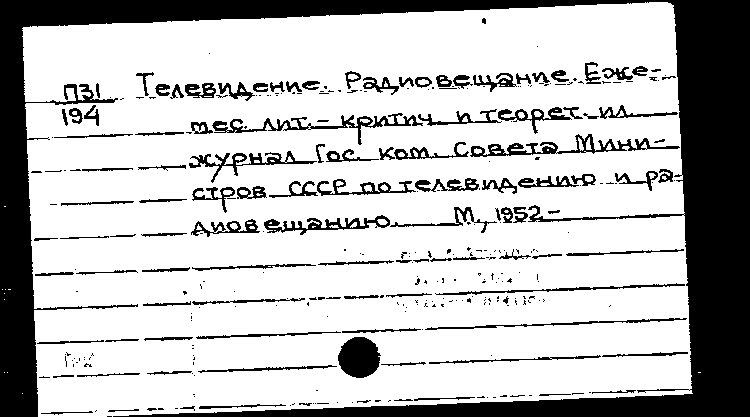 П31 Телевидение. Радиовещание. Еже-
194
мес. лит.-критич. и теорет. ил.
журнал Гос. ком. Совета Мини-
стров СССР по телевидению и ра-
диовещанию. М., 1952-